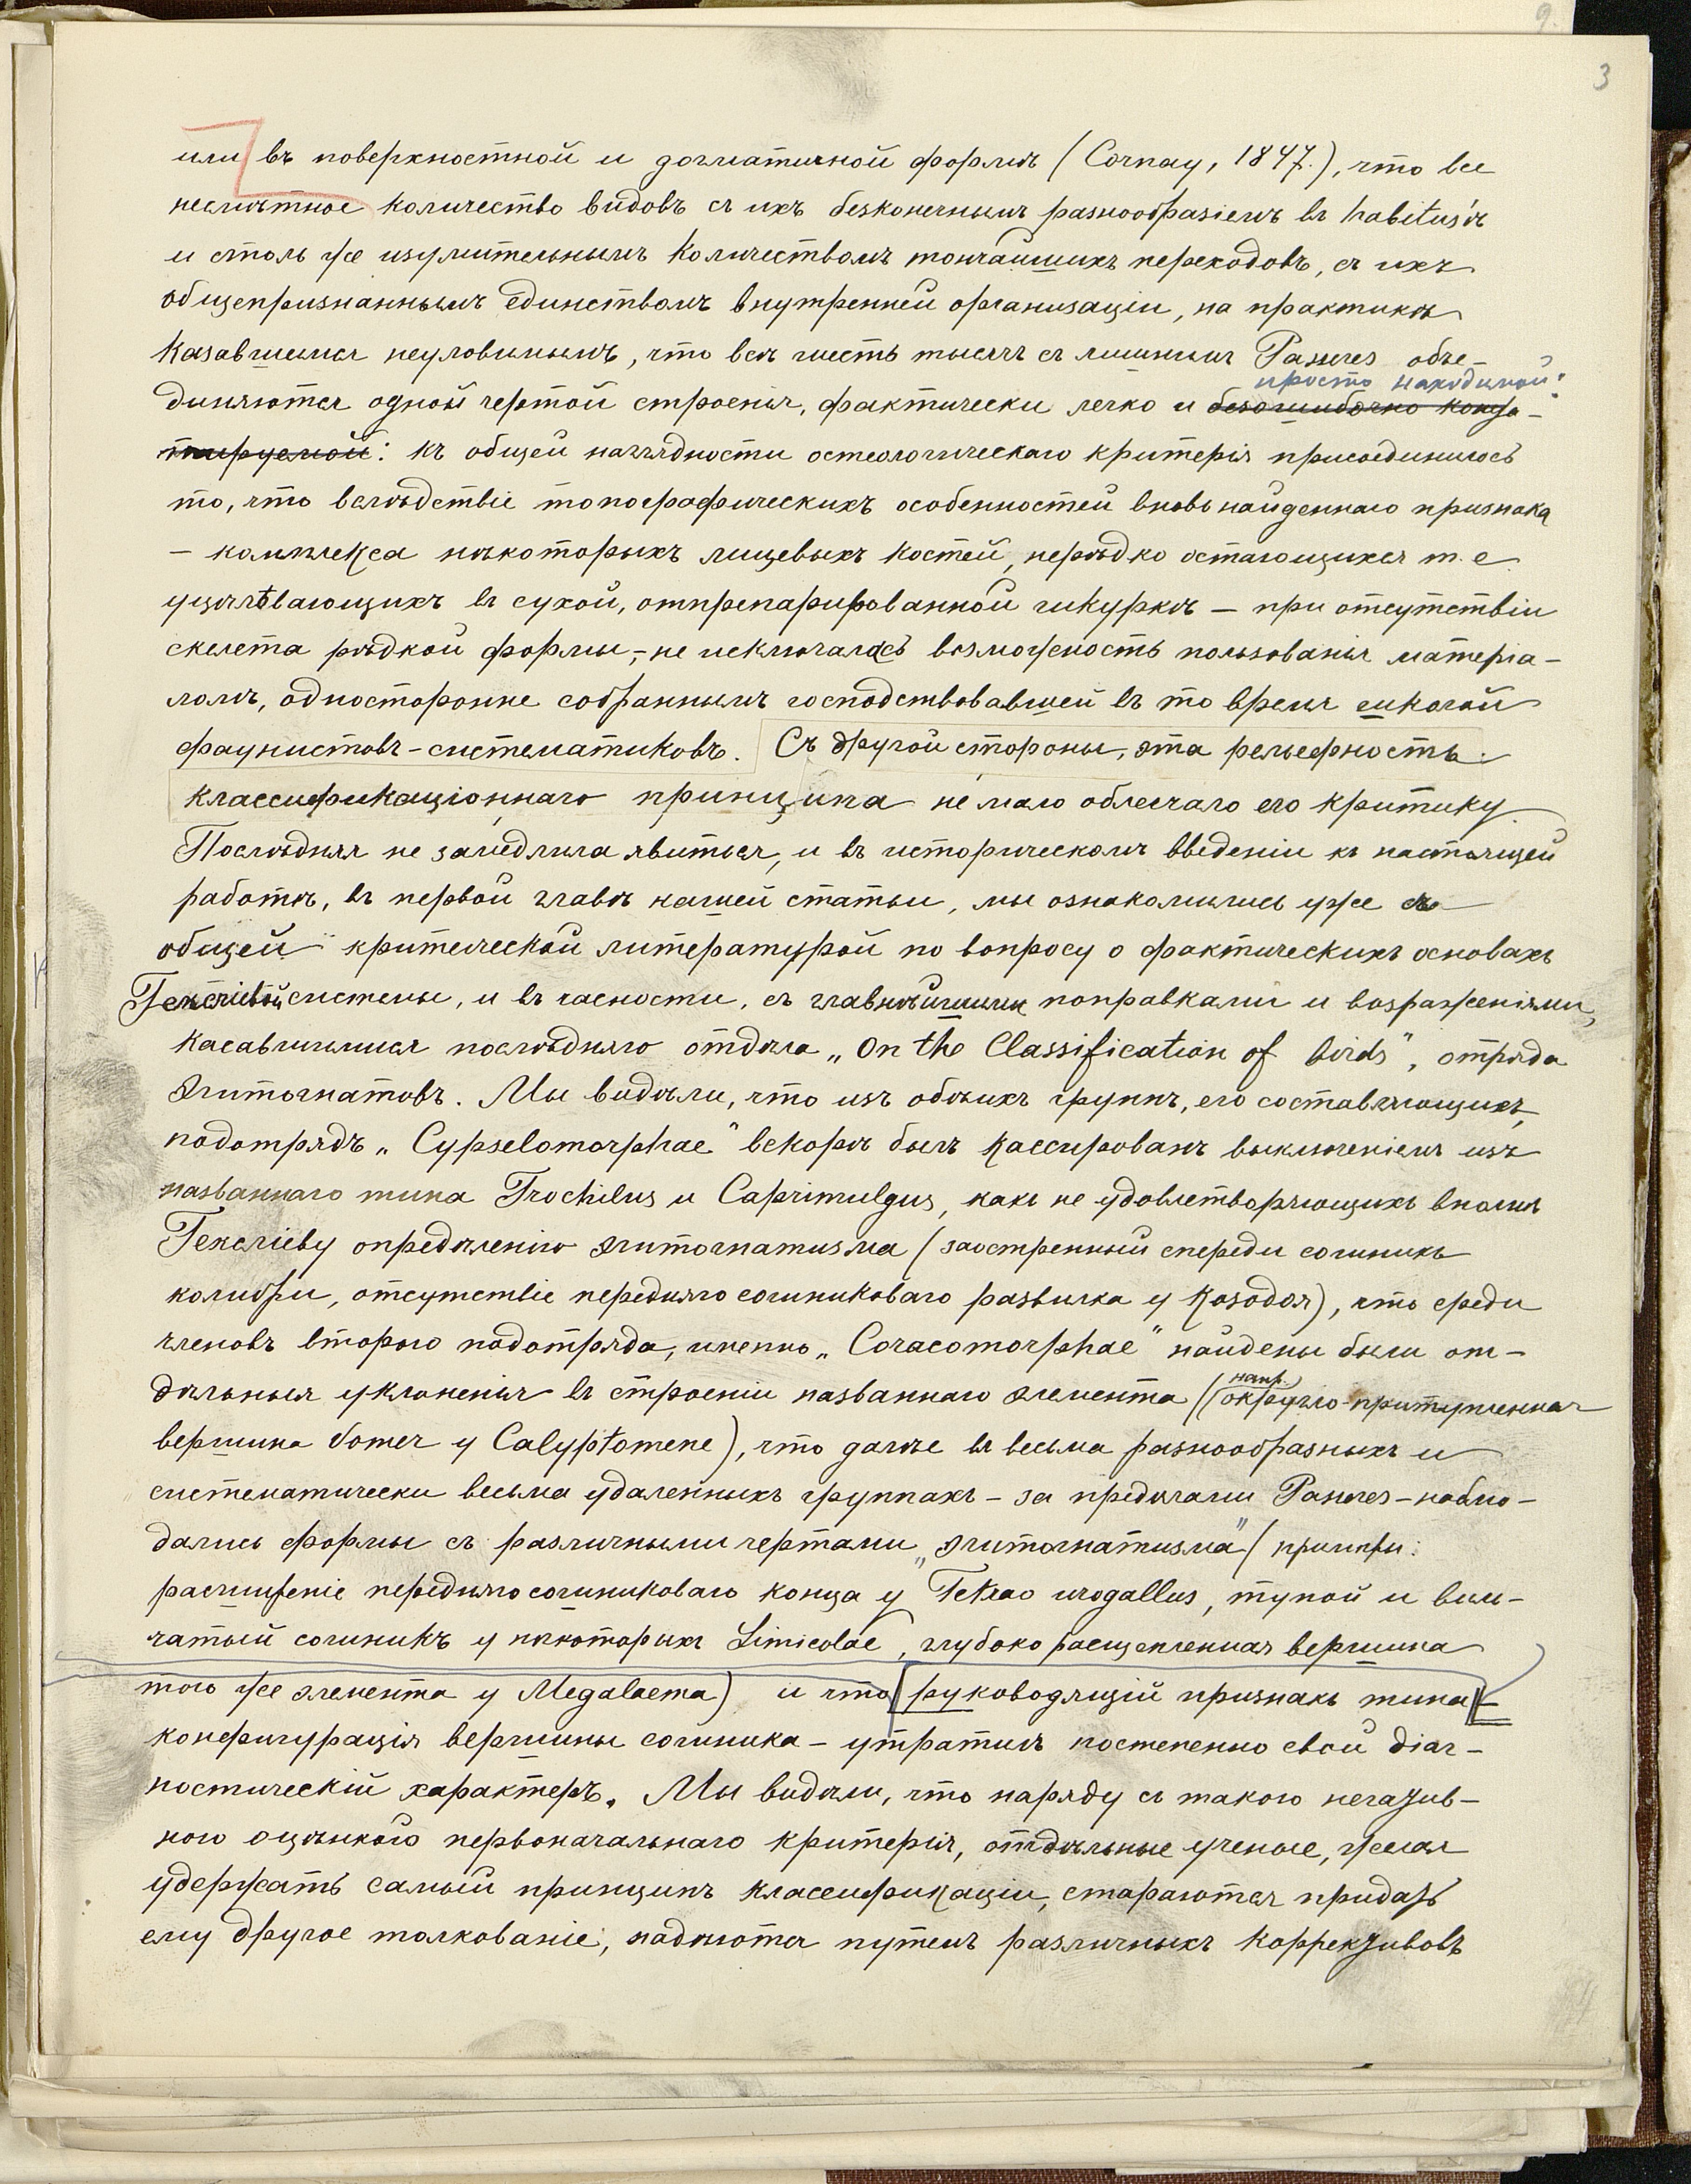 9.
3
или въ поверхностной и догматичной формѣ (Cornay, 1847.), что все
несмѣтное количество видовъ съ ихъ безконечнымъ разнообразіемъ въ habitus'ѣ
и столь же изумительнымъ количествомъ тончайшихъ переходовъ, съ ихъ
общепризнаннымъ единствомъ внутренней организаціи, на практикѣ
казавшемся неуловимымъ, что всѣ шесть тысячъ съ лишнимъ Passeres объе-
просто находимой:
диняются одной чертой строенія, фактически легко и безошибочно конста-
тируемой: къ общей наглядности остеологическаго критерія присоединилось
то, что вслѣдствіе топографическихъ особенностей вновь найденнаго признака
– комплекса нѣкоторыхъ лицевыхъ костей, нерѣдко остающихся т. е
уцѣлѣвающихъ въ сухой, отпрепарированной шкуркѣ – при отсутствіи
скелета рѣдкой формы, – не исключалась возможность пользованія матеріа-
ломъ, односторонне собраннымъ господствовавшей въ то время школой
фаунистовъ-систематиковъ. Съ другой стороны, эта рельефность
классификаціоннаго принципа не мало облегчало его критику.
Послѣдняя не замедлила явиться, и въ историческомъ введеніи къ настоящей
работѣ, въ первой главѣ нашей статьи, мы ознакомились уже съ
общей критической литературой по вопросу о фактическихъ основахъ
Гексліевой системы, и въ часности, съ главнѣйшими поправками и возраженіями,
касавшимися послѣдняго отдѣла „On the Classification of birds", отряда
Эгитогнатовъ. Мы видѣли, что изъ обѣихъ группъ, его составляющихъ,
подотрядъ „Cypselomorphae" вскорѣ былъ кассированъ выключеніемъ изъ
названнаго типа Trochilus и Caprimulgus, какъ не удовлетворяющихъ вполнѣ
Гексліеву опредѣленію эгитогнатизма (заостренный спереди сошникъ
колибри, отсутствіе передняго сошниковаго развилка у козодоя), что среди
членовъ второго подотряда, именно „Coracomorphae" найдены были от-
дѣльныя уклоненія въ строеніи названнаго элемента (напр. округло-притупленная
вершина vomer у Calyptomene), что далѣе въ весьма разнообразныхъ и
систематически весьма удаленныхъ группахъ – за предѣлами Passeres – наблю-
дались формы съ различными чертами „эгитогнатизма" (примѣры:
расширеніе передняго сошниковаго конца у Tetrao urogallus, тупой и выем-
чатый сошникъ у нѣкоторыхъ Limicolae, глубоко расщепленная вершина
того же элемента у Megalaema) и что руководящій признакъ типа –
конфигурація вершины сошника – утратилъ постепенно свой діаг-
ностическій характеръ. Мы видѣли, что наряду съ такою негатив-
ною оцѣнкою первоначальнаго критерія, отдѣльные ученые, желая
удержать самый принципъ классификаціи, стараются придать
ему другое толкованіе, надѣются путемъ различныхъ коррективовъ